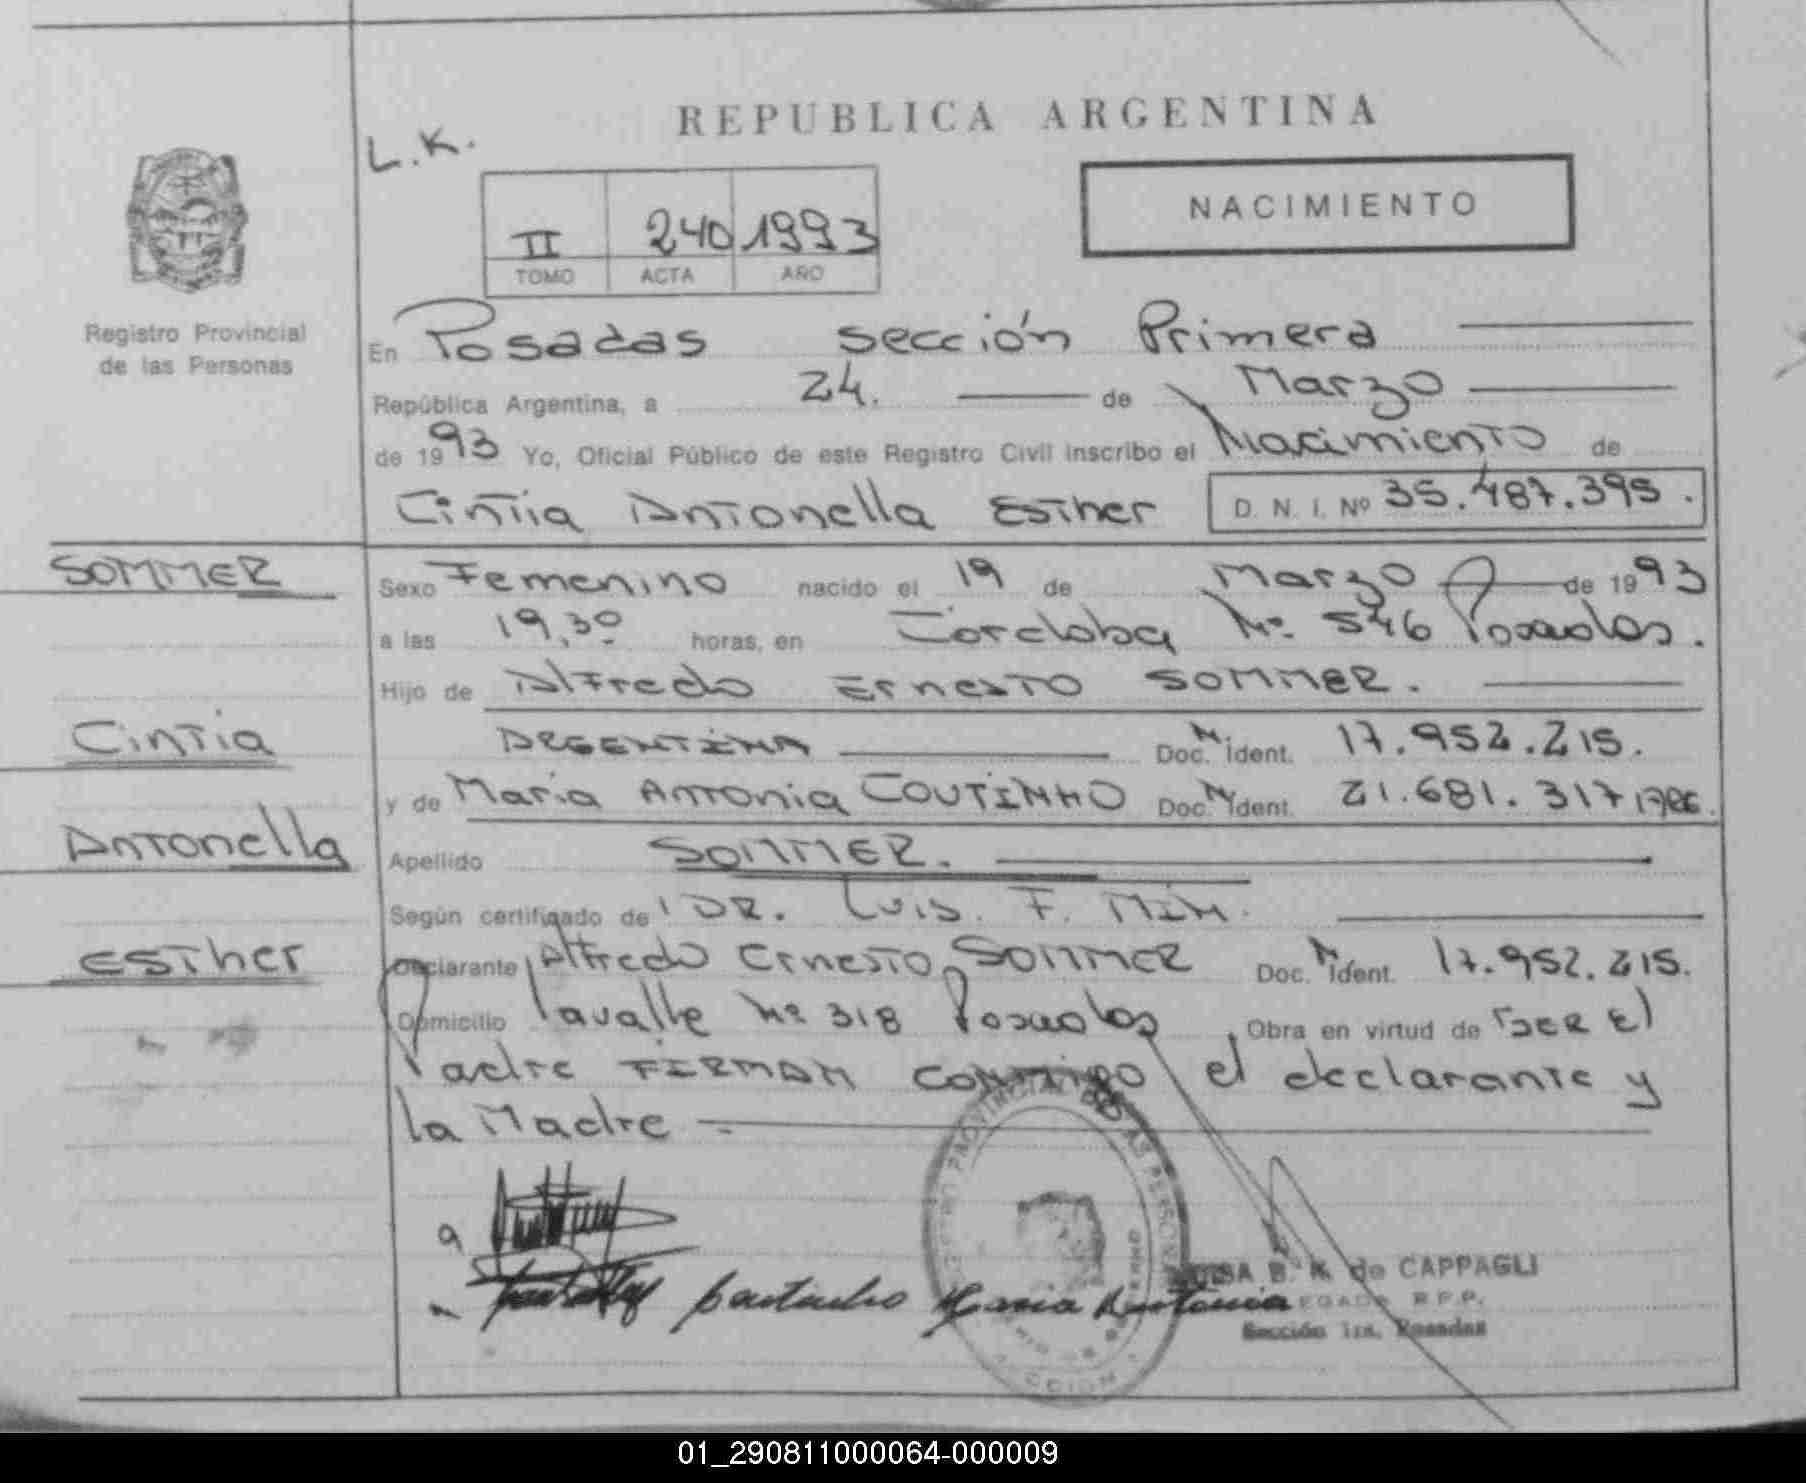 REPUBLICA ARGENTINA
L.K.
NACIMIENTO
II 240 1993
TOMO ACTA AÑO
Registro Provincial
de las Personas
En Posadas sección Primera
República Argentina, a 24. de Marzo
de 1993 Yo, Oficial Público de este Registro Civil inscribo el Nacimiento de
Cintia Antonella Esther D. N. I. Nº 35.487.395.
SOMMER
Sexo Femenino nacido el 19 de Marzo de 1993
a las 19,30 horas, en Córdoba Nº 546 Posadas.
Hijo de Alfredo Ernesto SOMMER.
Cintia
ARGENTINA Doc. N. Ident. 17.952.215.
y de Maria Antonia COUTINHO Doc. N. Ident. 21.681.317
Antonella
Apellido SOMMER.
Según certificado de DR. Luis. F. MIN.
Esther
Declarante Alfredo Ernesto SOMMER Doc. N. Ident. 17.952.215.
Domicilio Lavalle Nº 318 Posadas, Obra en virtud de SER El
Padre FIRMAN CONMIGO el declarante y
la Madre
Maria Antonia
B. K. de CAPPAGLI
R.P.P.
Sección 1ra. Posadas
01_290811000064-000009